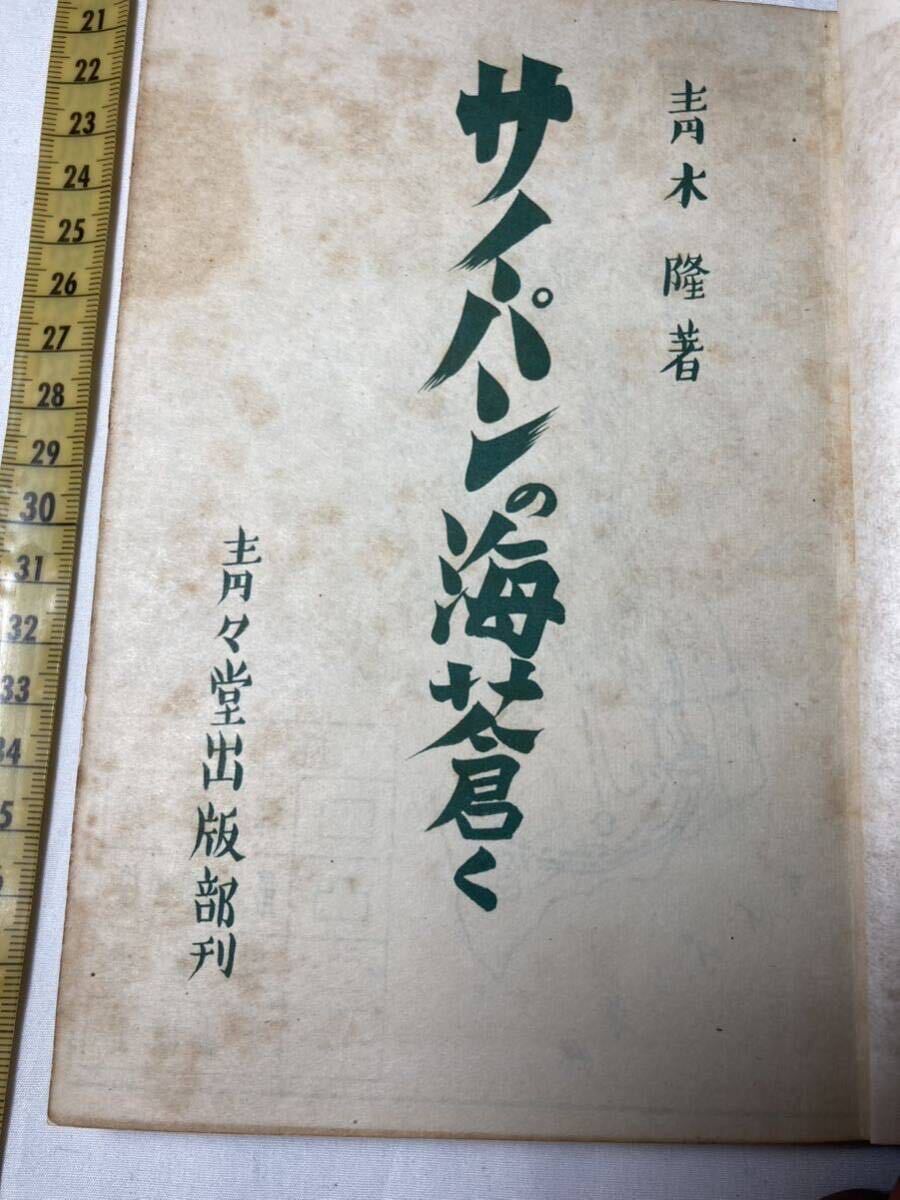 青木隆著
サイパンの海蒼く
青々堂出版部刊
21
22
23
24
25
26
27
28
29
30
31
32
33
34
5